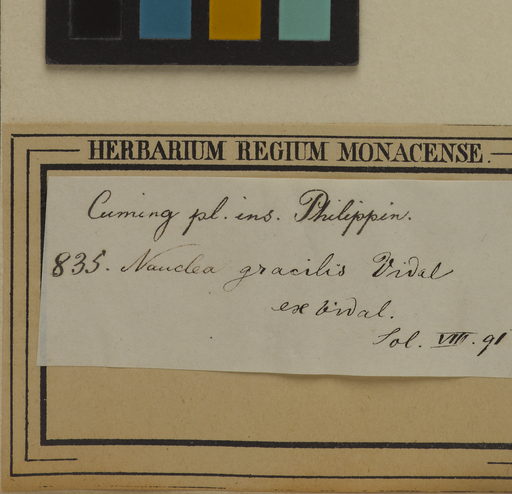 HERBARIUM REGIUM MONACENSE.
Cuming pl. ins. Philippin.
835. Nauclea gracilis Vidal
ex Vidal.
Sol. VIII. 91